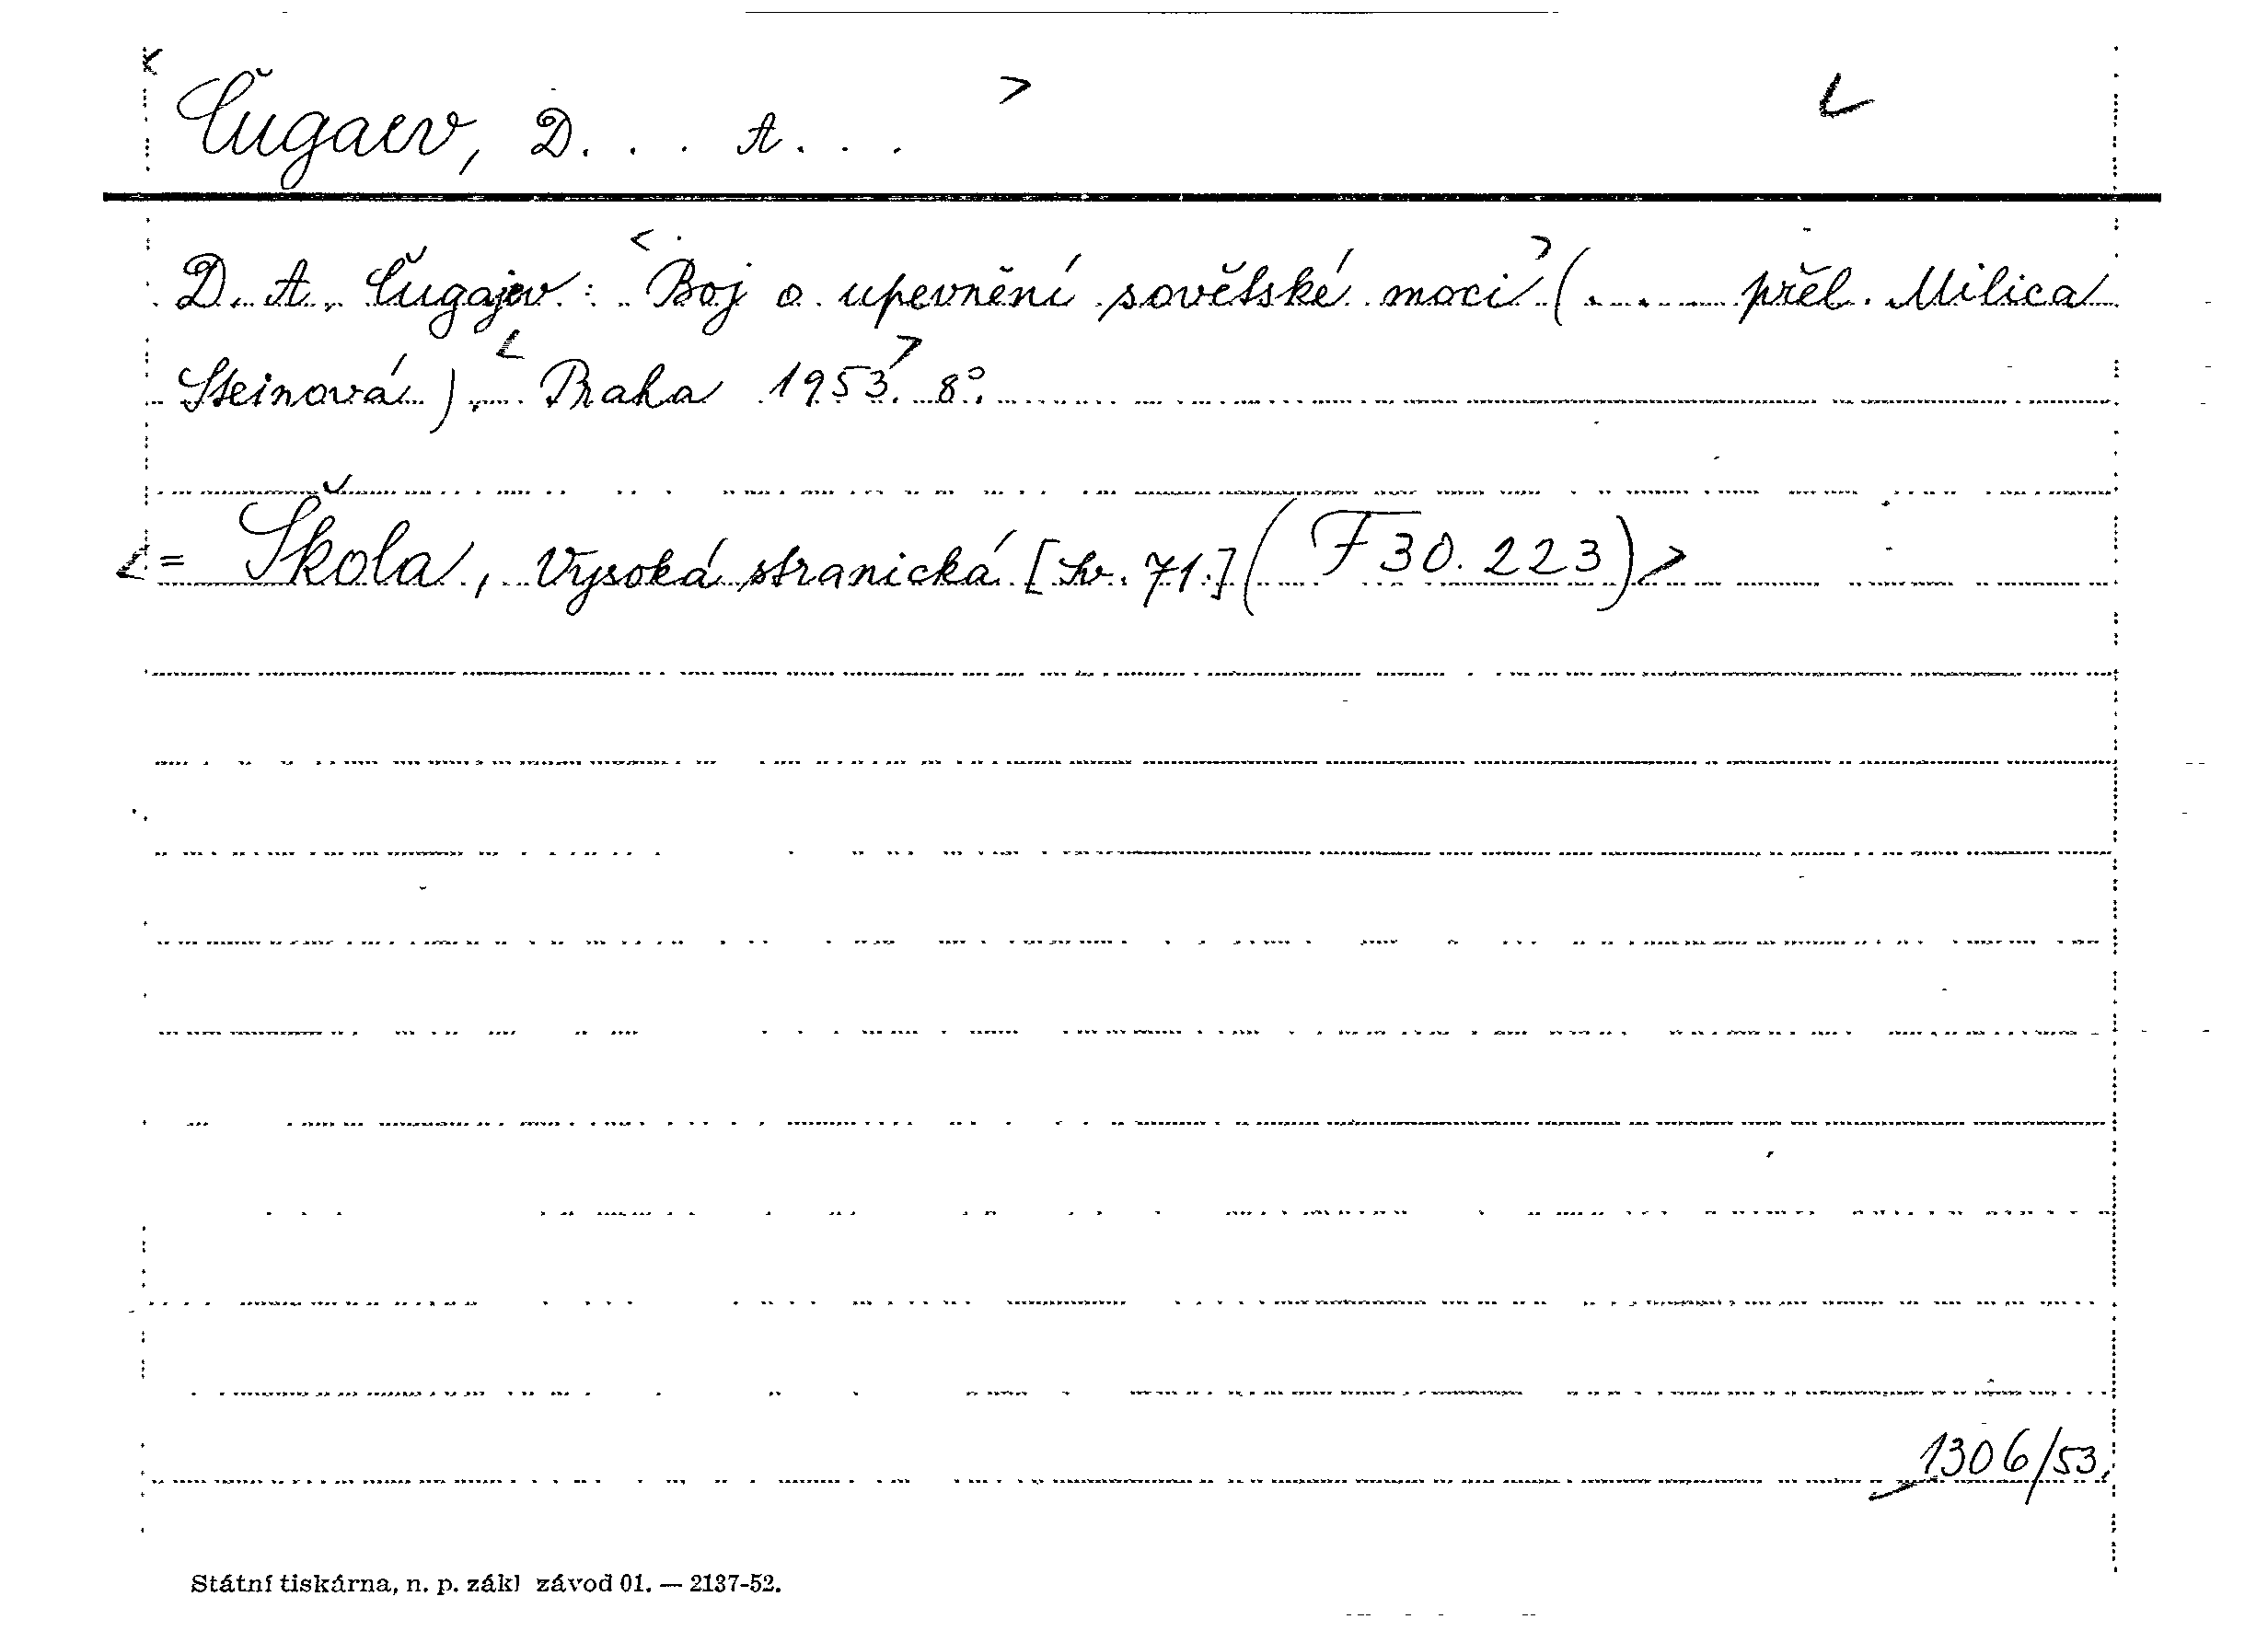 Čugaev, D. . . A. . .
D. A. Čugajev: Boj o upevnění sovětské moci (..... přel. Milica
Steinová). Praha 1953. 8°.
= Škola, Vysoká stranická [sv. 71.] (F 30.223)
1306/53.
Státní tiskárna, n. p. zákl závod 01. — 2137-52.